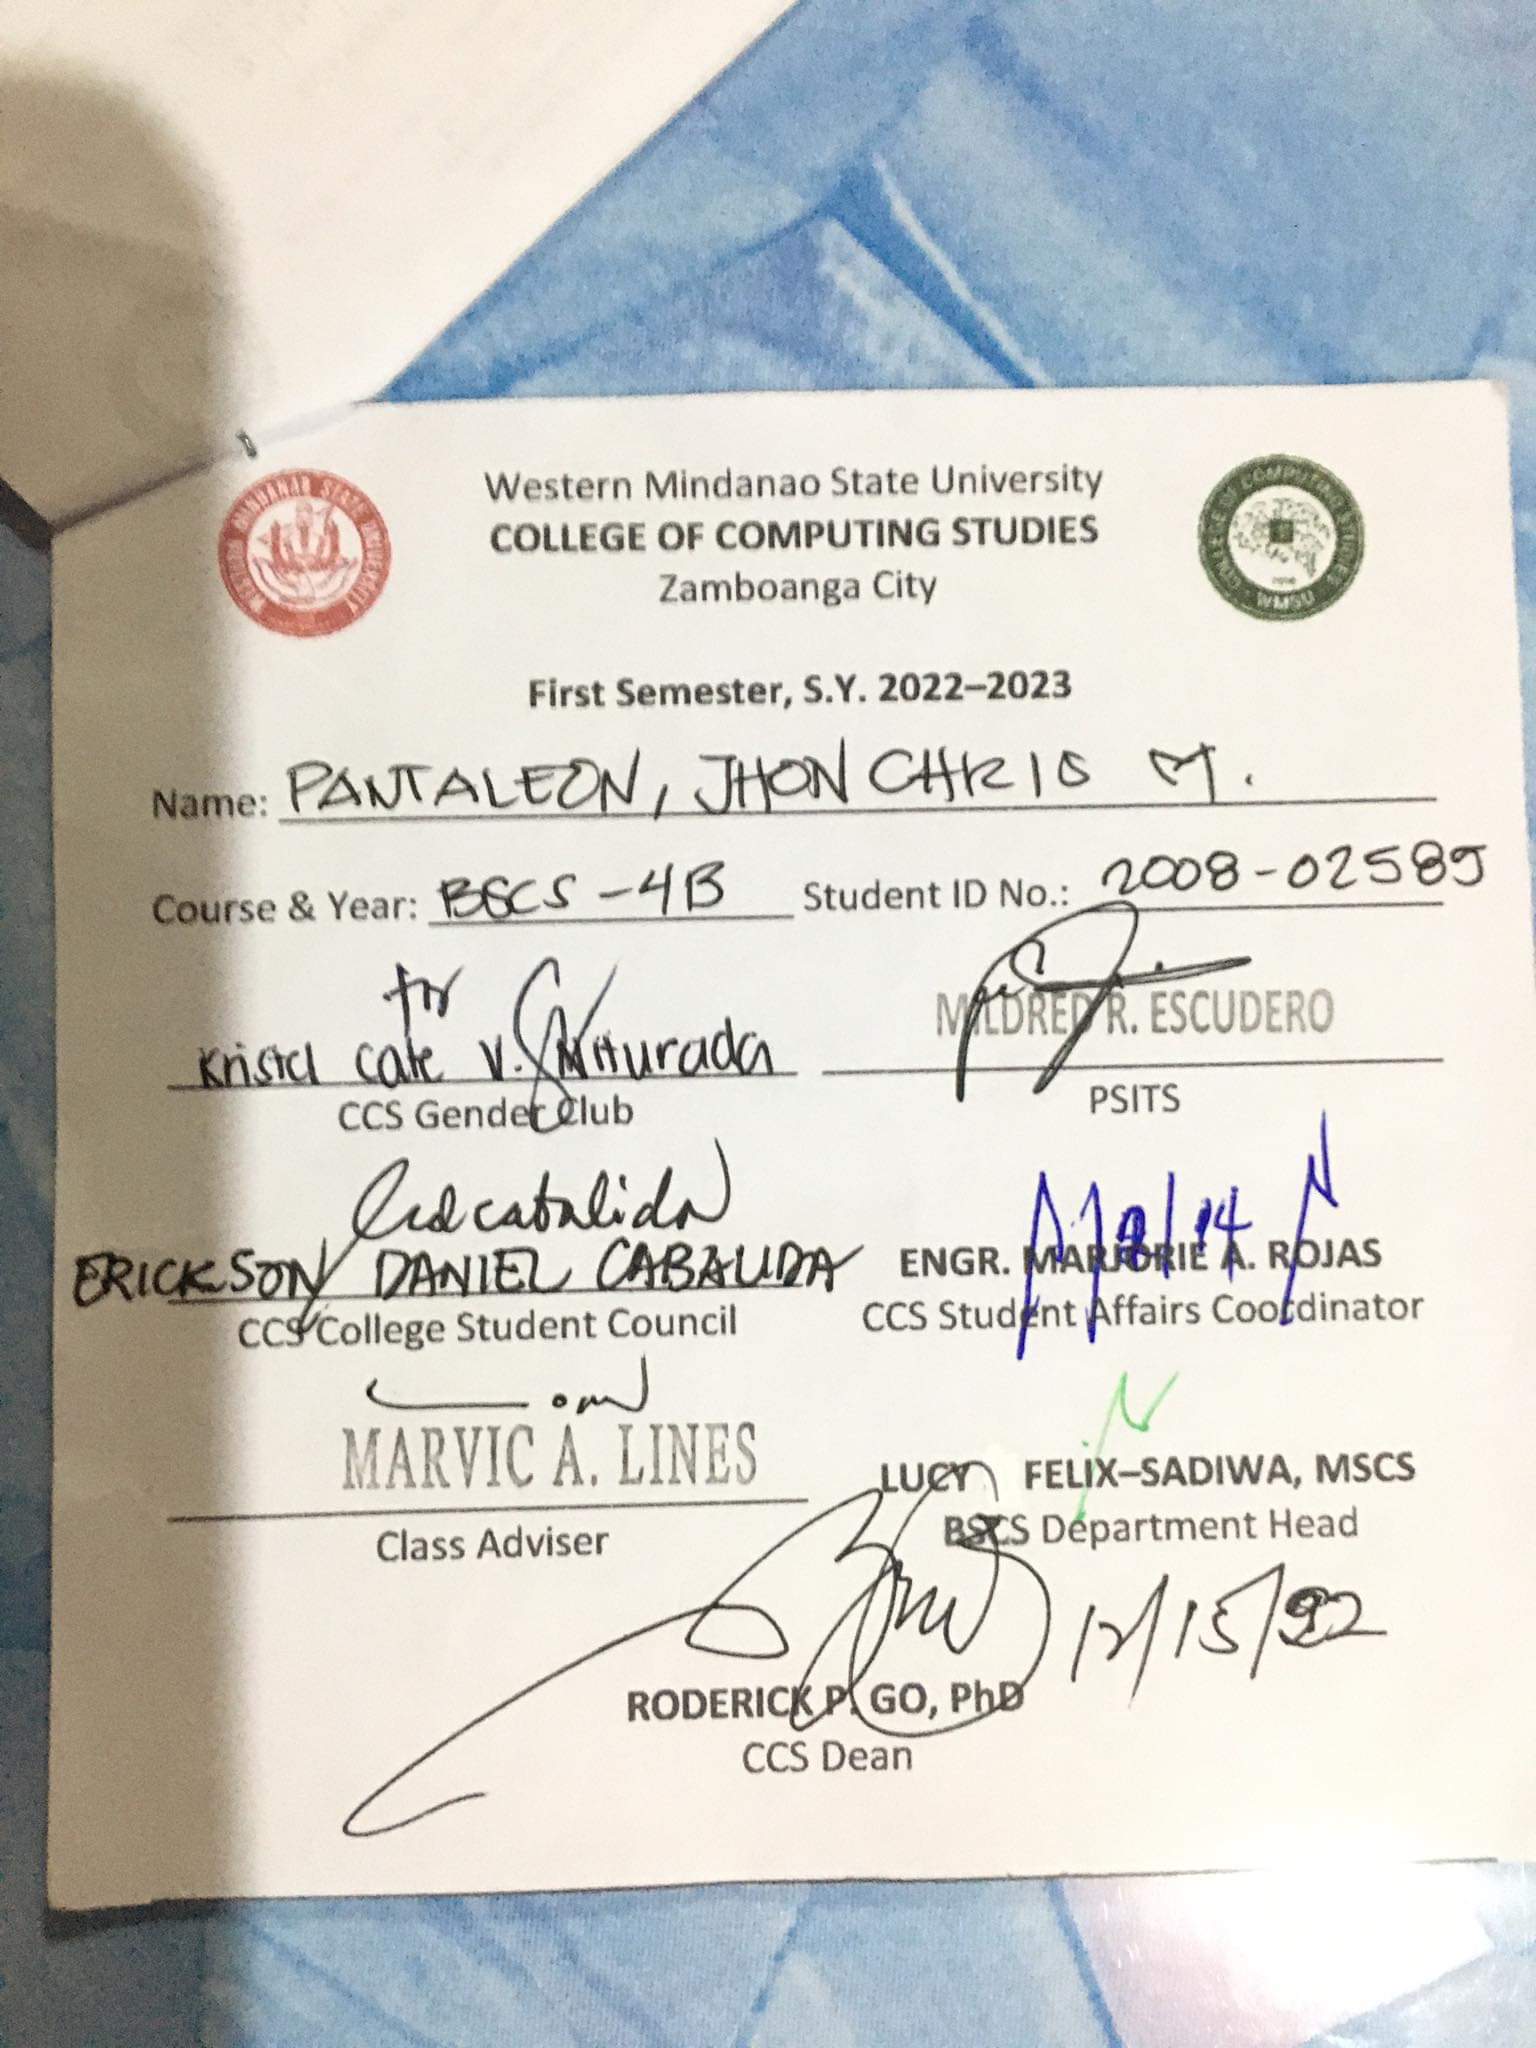 Western Mindanao State University
COLLEGE OF COMPUTING STUDIES
Zamboanga City
WESTERN MINDANAO STATE UNIVERSITY
COLLEGE OF COMPUTING STUDIES
WMSU
First Semester, S.Y. 2022–2023
Name: PANTALEON, JHON CHRIS M.
Course & Year: BSCS - 4B Student ID No.: 2008-02589
for
Kristel Cate V. Niturada
CCS Gender Club
MILDRED R. ESCUDERO
PSITS
ERICKSON DANIEL CABALIDA
CCS College Student Council
ENGR. MARJORIE A. ROJAS
CCS Student Affairs Coordinator
MARVIC A. LINES
Class Adviser
LUCY FELIX–SADIWA, MSCS
BSCS Department Head
12/15/22
RODERICK P. GO, PhD
CCS Dean